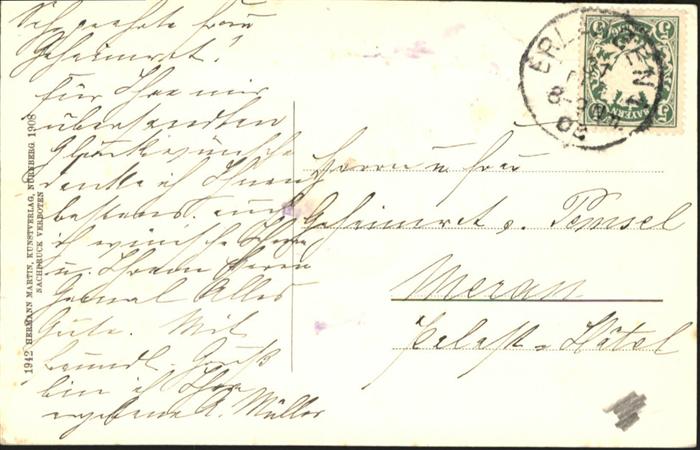 Sehr geehrte Frau
Geheimrat!
Für Ihre mir
übersandten
Glückwünsche
danke ich Ihnen
bestens. Auch
ich wünsche Ihnen
u. Ihrem Herrn
Gemal Alles
Gute. Mit
freundl. Gruß
bin ich Ihre
ergebene A. Müller
1942 HERMANN MARTIN, KUNSTVERLAG, NÜRNBERG. 1908
NACHDRUCK VERBOTEN
ERLANGEN 1
8-9
08
5 5
BAYERN
5 5
Herrn u. Frau
Geheimrat v. Pemsel
Meran
Palast-Hôtel